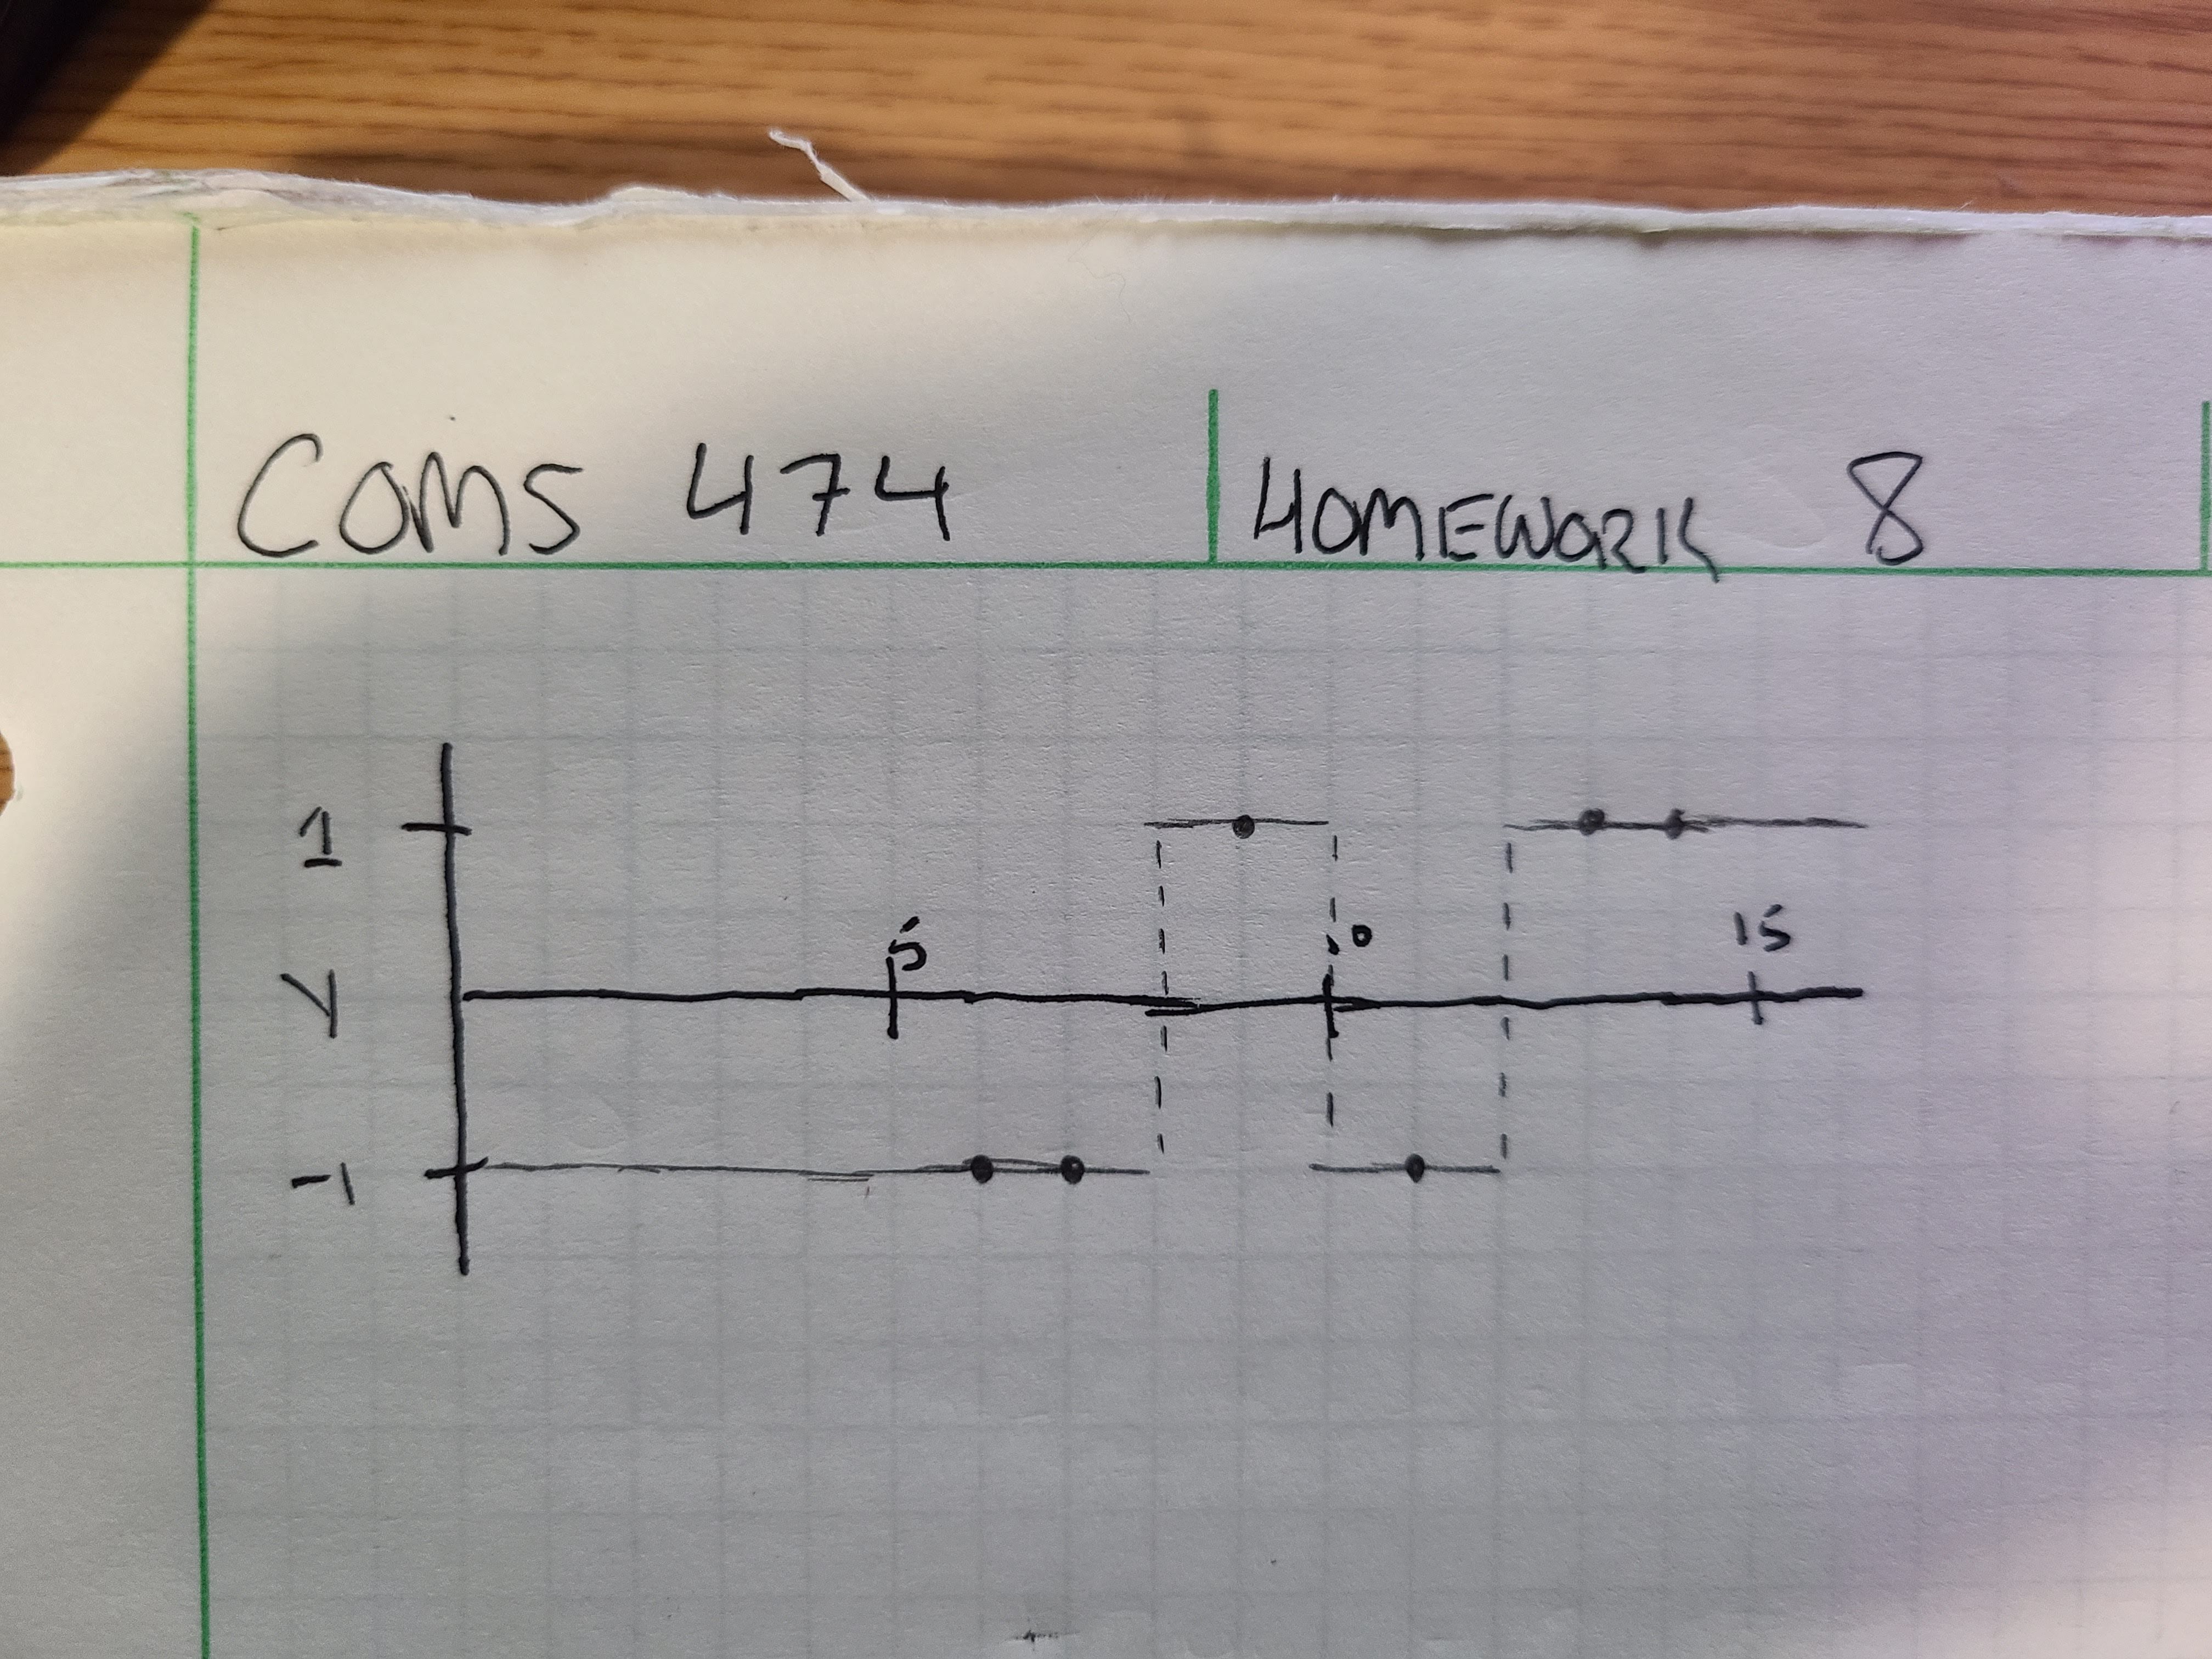 Coms 474 HOMEWORK 8
1
5 10 15
Y
-1